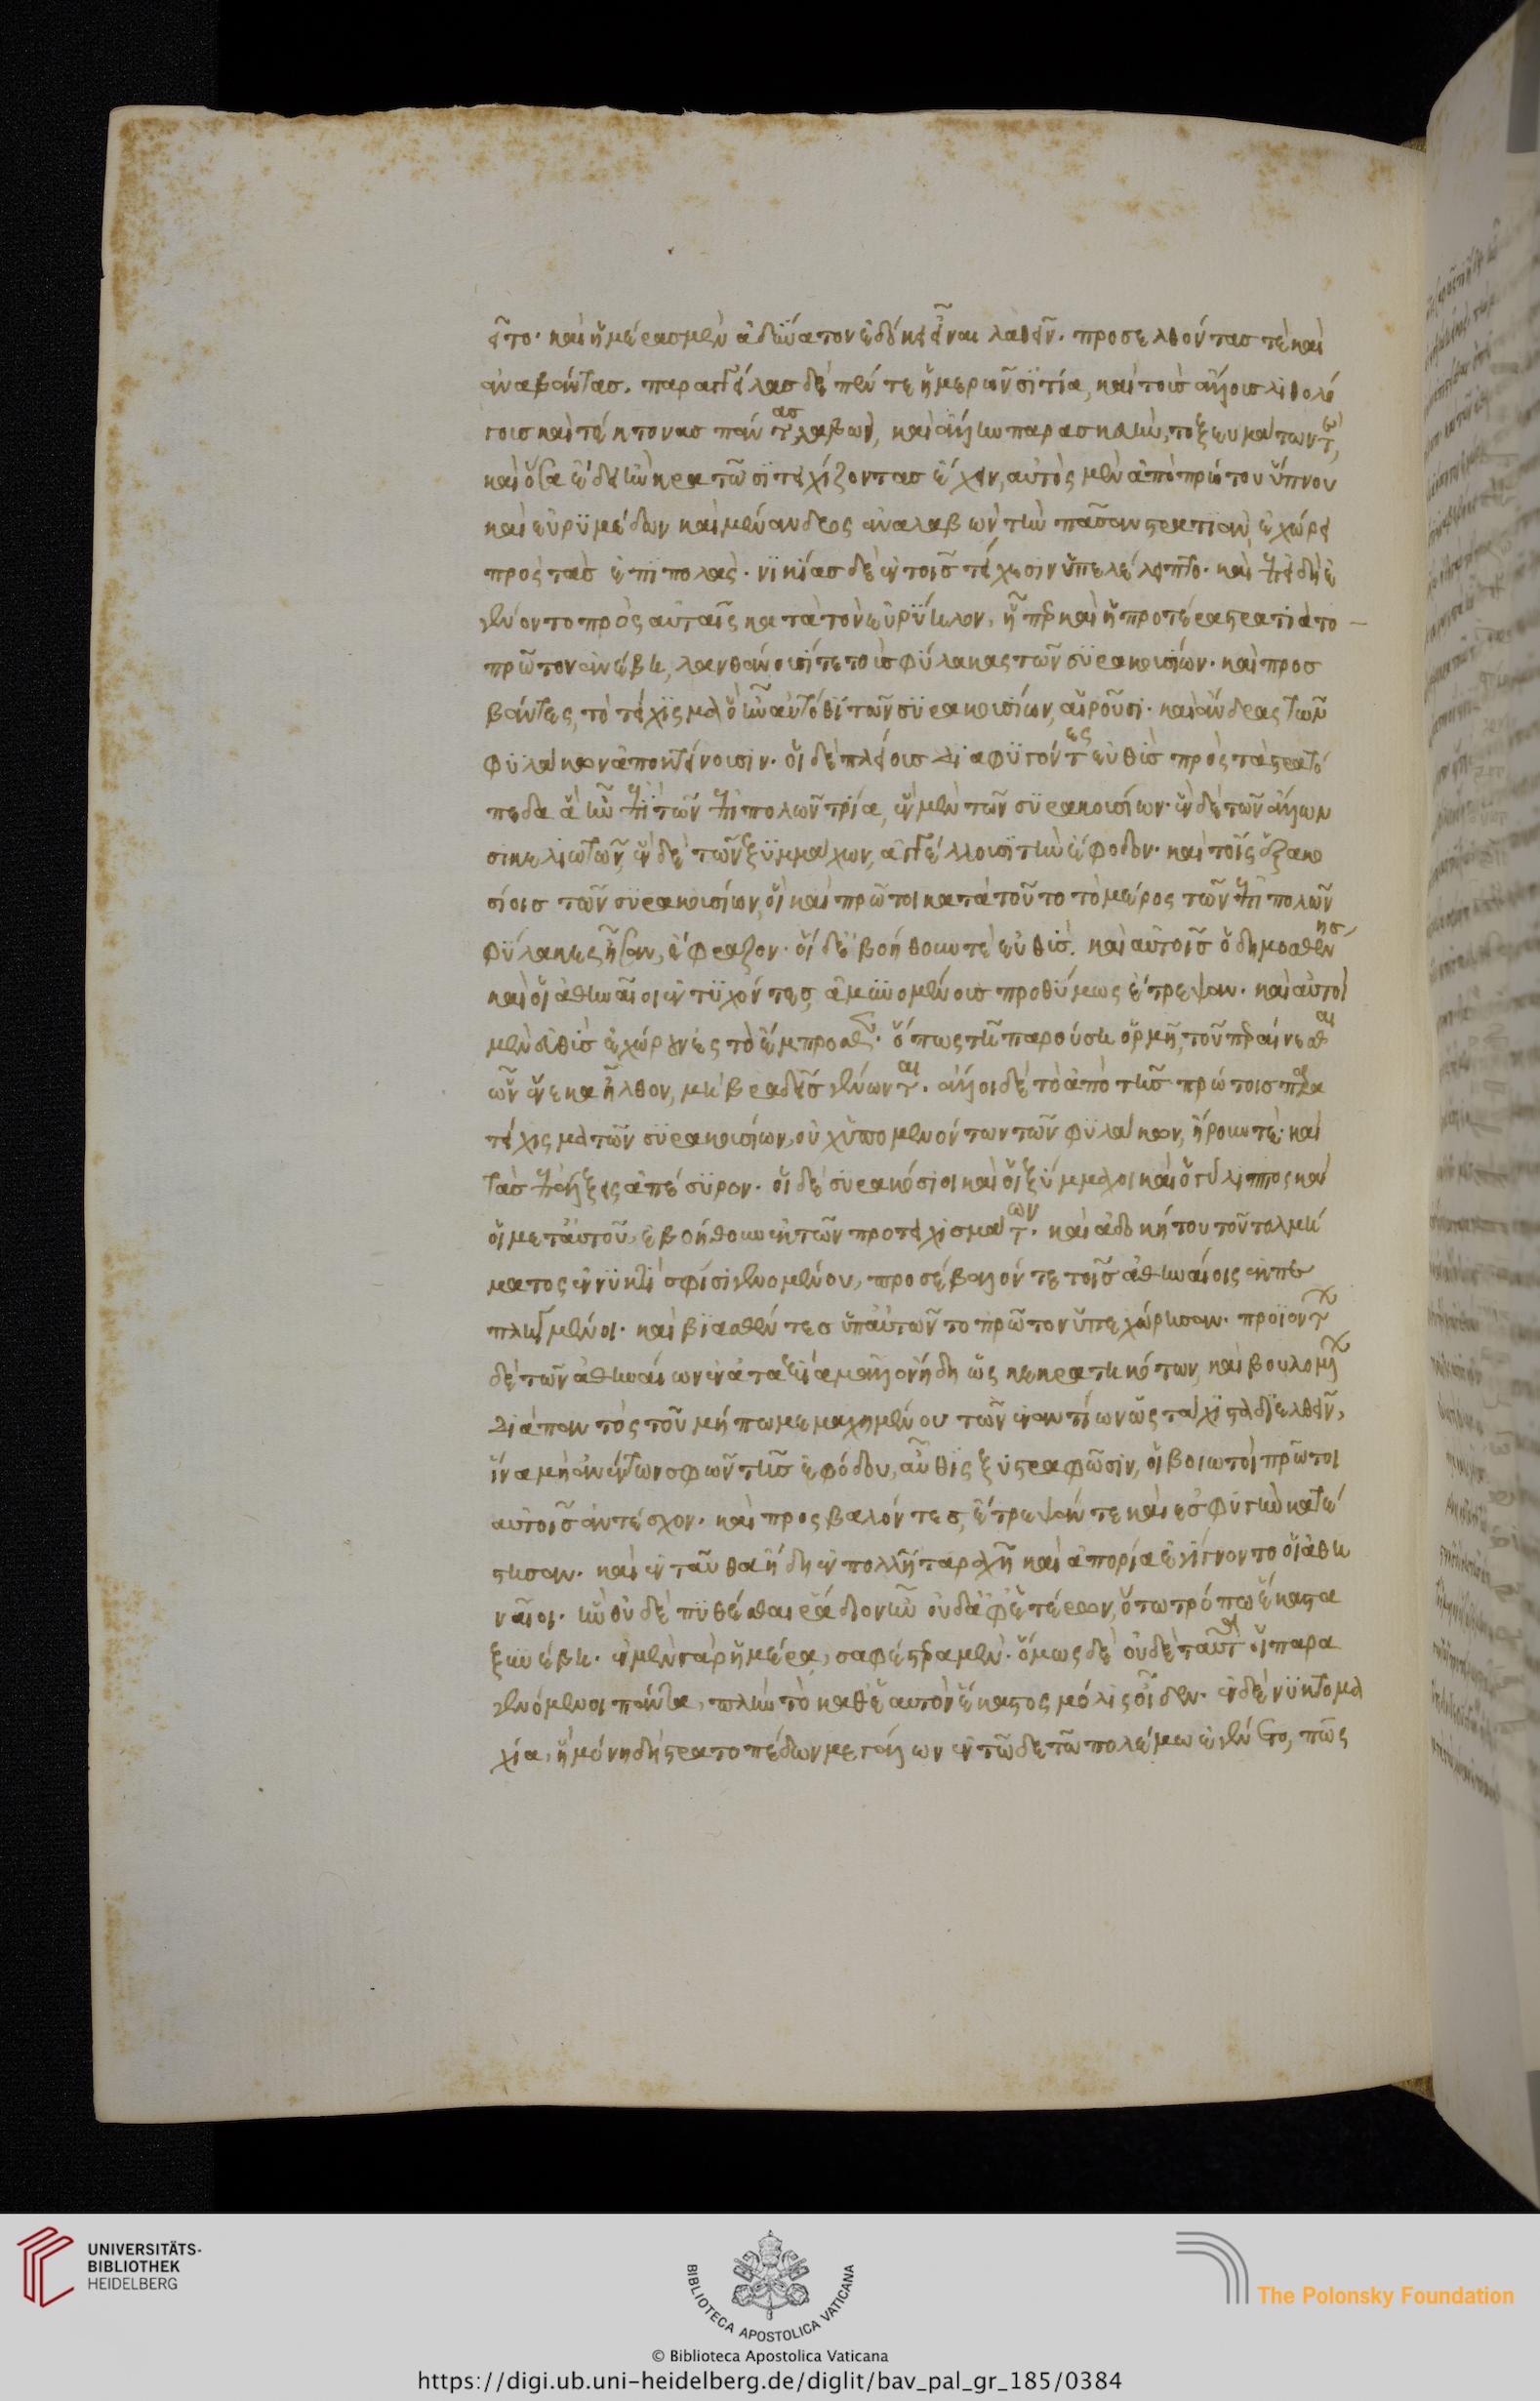 εῖτο. καὶ ἡμέρας μὲν ἀδύνατον ἐδόκει εἶναι λαθεῖν. προσελθόντας τὲ καὶ
ἀναβάντας. παραγγείλας δὲ πέντε ἡμερῶν σιτία, καὶ τοὺς ἄλλους λιθολό
γους καὶ τέκτονας πάντας λαβὼν, καὶ ἄλλην παρασκευὴν, τοξευμάτων τε,
καὶ ὅσα ἔδει ἢν κρατῶσι τειχίζοντας ἔχειν, αὐτὸς μὲν ἀπὸ πρώτου ὕπνου
καὶ εὐρυμέδων καὶ μένανδρος ἀναλαβὼν τὴν πᾶσαν στρατιὰν ἐχώρει
πρὸς τὰς ἐπιπολάς. νικίας δὲ ἐν τοῖς τείχεσιν ὑπελέλειπτο. καὶ ἐπειδὴ ἐ
γένοντο πρὸς αὐταῖς κατὰ τὸν εὐρύηλον, ἧπερ καὶ ἡ προτέρα στρατιὰ το
πρῶτον ἀνέβη, λανθάνουσί τε τοὺς φύλακας τῶν συρακουσίων. καὶ προσ
βάντες, τὸ τείχισμα ὃ ἦν αὐτόθι τῶν συρακουσίων, αἱροῦσι. καὶ ἄνδρας τῶν
φυλάκων ἀποκτείνουσιν. οἱ δὲ πλείους διαφυγόντες εὐθὺς πρὸς τὰ στρατό
πεδα ἃ ἦν ἐπὶ τῶν ἐπιπολῶν τρία, ἓν μὲν τῶν συρακουσίων. ἓν δὲ τῶν ἄλλων
σικελιωτῶν, ἓν δὲ τῶν ξυμμάχων, ἀγγέλλουσι τὴν ἔφοδον. καὶ τοῖς ἑξακο
σίοις τῶν συρακουσίων, οἳ καὶ πρῶτοι κατὰ τοῦτο τὸ μέρος τῶν ἐπιπολῶν
φύλακες ἦσαν, ἔφραζον. οἱ δὲ βοήθουν τε εὐθὺς. καὶ αὐτοῖς ὁ δημοσθένης
καὶ οἱ ἀθηναῖοι ἐντυχόντες, ἀμυνομένους προθύμως ἔτρεψαν. καὶ αὐτοὶ
μὲν εὐθὺς ἐχώρουν ἐς τὸ ἔμπροσθεν. ὅπως τῇ παρούσῃ ὁρμῇ, τοῦ περαίνεσθαι
ὧν ἕνεκα ἦλθον, μὴ βραδεῖς γένωνται. ἄλλοι δὲ τὸ ἀπὸ τῆς πρώτης παρα
τείχισμα τῶν συρακουσίων, οὐχ ὑπομενόντων τῶν φυλάκων, ᾕρουν τε. καὶ
τὰς ἐπάλξεις ἀπέσυρον. οἱ δὲ συρακόσιοι καὶ οἱ ξύμμαχοι καὶ ὁ γύλιππος καὶ
οἱ μετ' αὐτοῦ, ἐβοήθουν ἐκ τῶν προτειχισμάτων. καὶ ἀδοκήτου τοῦ τολμή
ματος ἐν νυκτὶ σφίσι γενομένου, προσέβαλόν τε τοῖς ἀθηναίοις ἐκπε
πληγμένοι. καὶ βιασθέντες ὑπ' αὐτῶν το πρῶτον ὑπεχώρησαν. προϊόντων
δὲ τῶν ἀθηναίων ἐν ἀταξίᾳ μᾶλλον ἤδη ὡς κεκρατηκότων, καὶ βουλομένων
διὰ παντὸς τοῦ μήπω μεμαχημένου τῶν ἐναντίων ὡς τάχιστα διελθεῖν,
ἵνα μὴ ἀνέντων σφῶν τῆς ἐφόδου, αὖθις ξυστραφῶσιν, οἱ βοιωτοὶ πρῶτοι
αὐτοῖς ἀντέσχον. καὶ προσβαλόντες, ἔτρεψάν τε καὶ ἐς φυγὴν κατέ
στησαν. καὶ ἐνταῦθα ἤδη ἐν πολλῇ ταραχῇ καὶ ἀπορίᾳ ἐγίγνοντο οἱ ἀθη
ναῖοι. ἣν οὐδὲ πυθέσθαι ῥάδιον ἦν οὐδ' ἀφ' ἑτέρων, ὅτῳ τρόπῳ ἕκαστα
ξυνέβη. ἐν μὲν γὰρ ἡμέρᾳ, σαφέστερα μὲν. ὅμως δὲ οὐδὲ ταῦτα οἱ παρα
γενόμενοι πάντα, πλὴν τὸ καθ' ἑαυτὸν ἕκαστος μόλις οἶδεν. ἐν δὲ νυκτομα
χίᾳ, ἣ μόνη δὴ στρατοπέδων μεγάλων ἐν τῷδε τῷ πολέμῳ ἐγένετο, πῶς
UNIVERSITÄTS-
BIBLIOTHEK
HEIDELBERG
BIBLIOTECA APOSTOLICA VATICANA
The Polonsky Foundation
© Biblioteca Apostolica Vaticana
https://digi.ub.uni-heidelberg.de/diglit/bav_pal_gr_185/0384